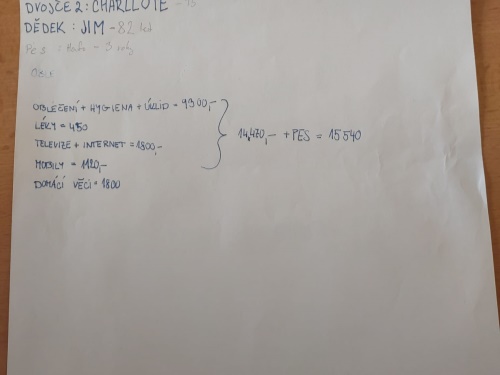 DVOJČE 2: CHARLLOTE - 13
DĚDEK: JIM - 82 let
Pes : - 3 roky
OBLEČENÍ + HYGIENA + ÚKLID = 9300,-
LÉKY = 450
TELEVIZE + INTERNET = 1800,-
MOBILY = 1120,-
DOMÁCÍ VĚCI = 1800
14,470,- + PES = 15 540